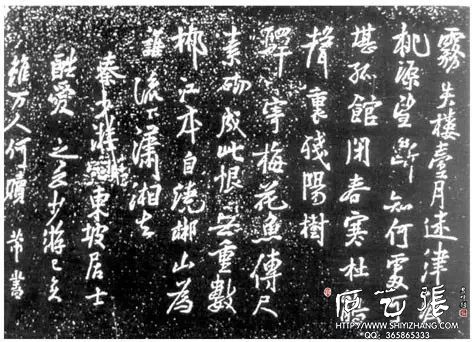 霧失樓臺月迷津渡
桃源望斷知何處可
堪孤館閉春寒杜鵑
聲裏殘陽樹
驛寄梅花魚傳尺
素砌成此恨無重數
郴江本自繞郴山為
誰流下瀟湘去
秦少游辭東坡居士
酷愛之云少游已矣
雖万人何贖 芾書
HTTP://WWW.SHIYIZHANG.COM
QQ: 365865333